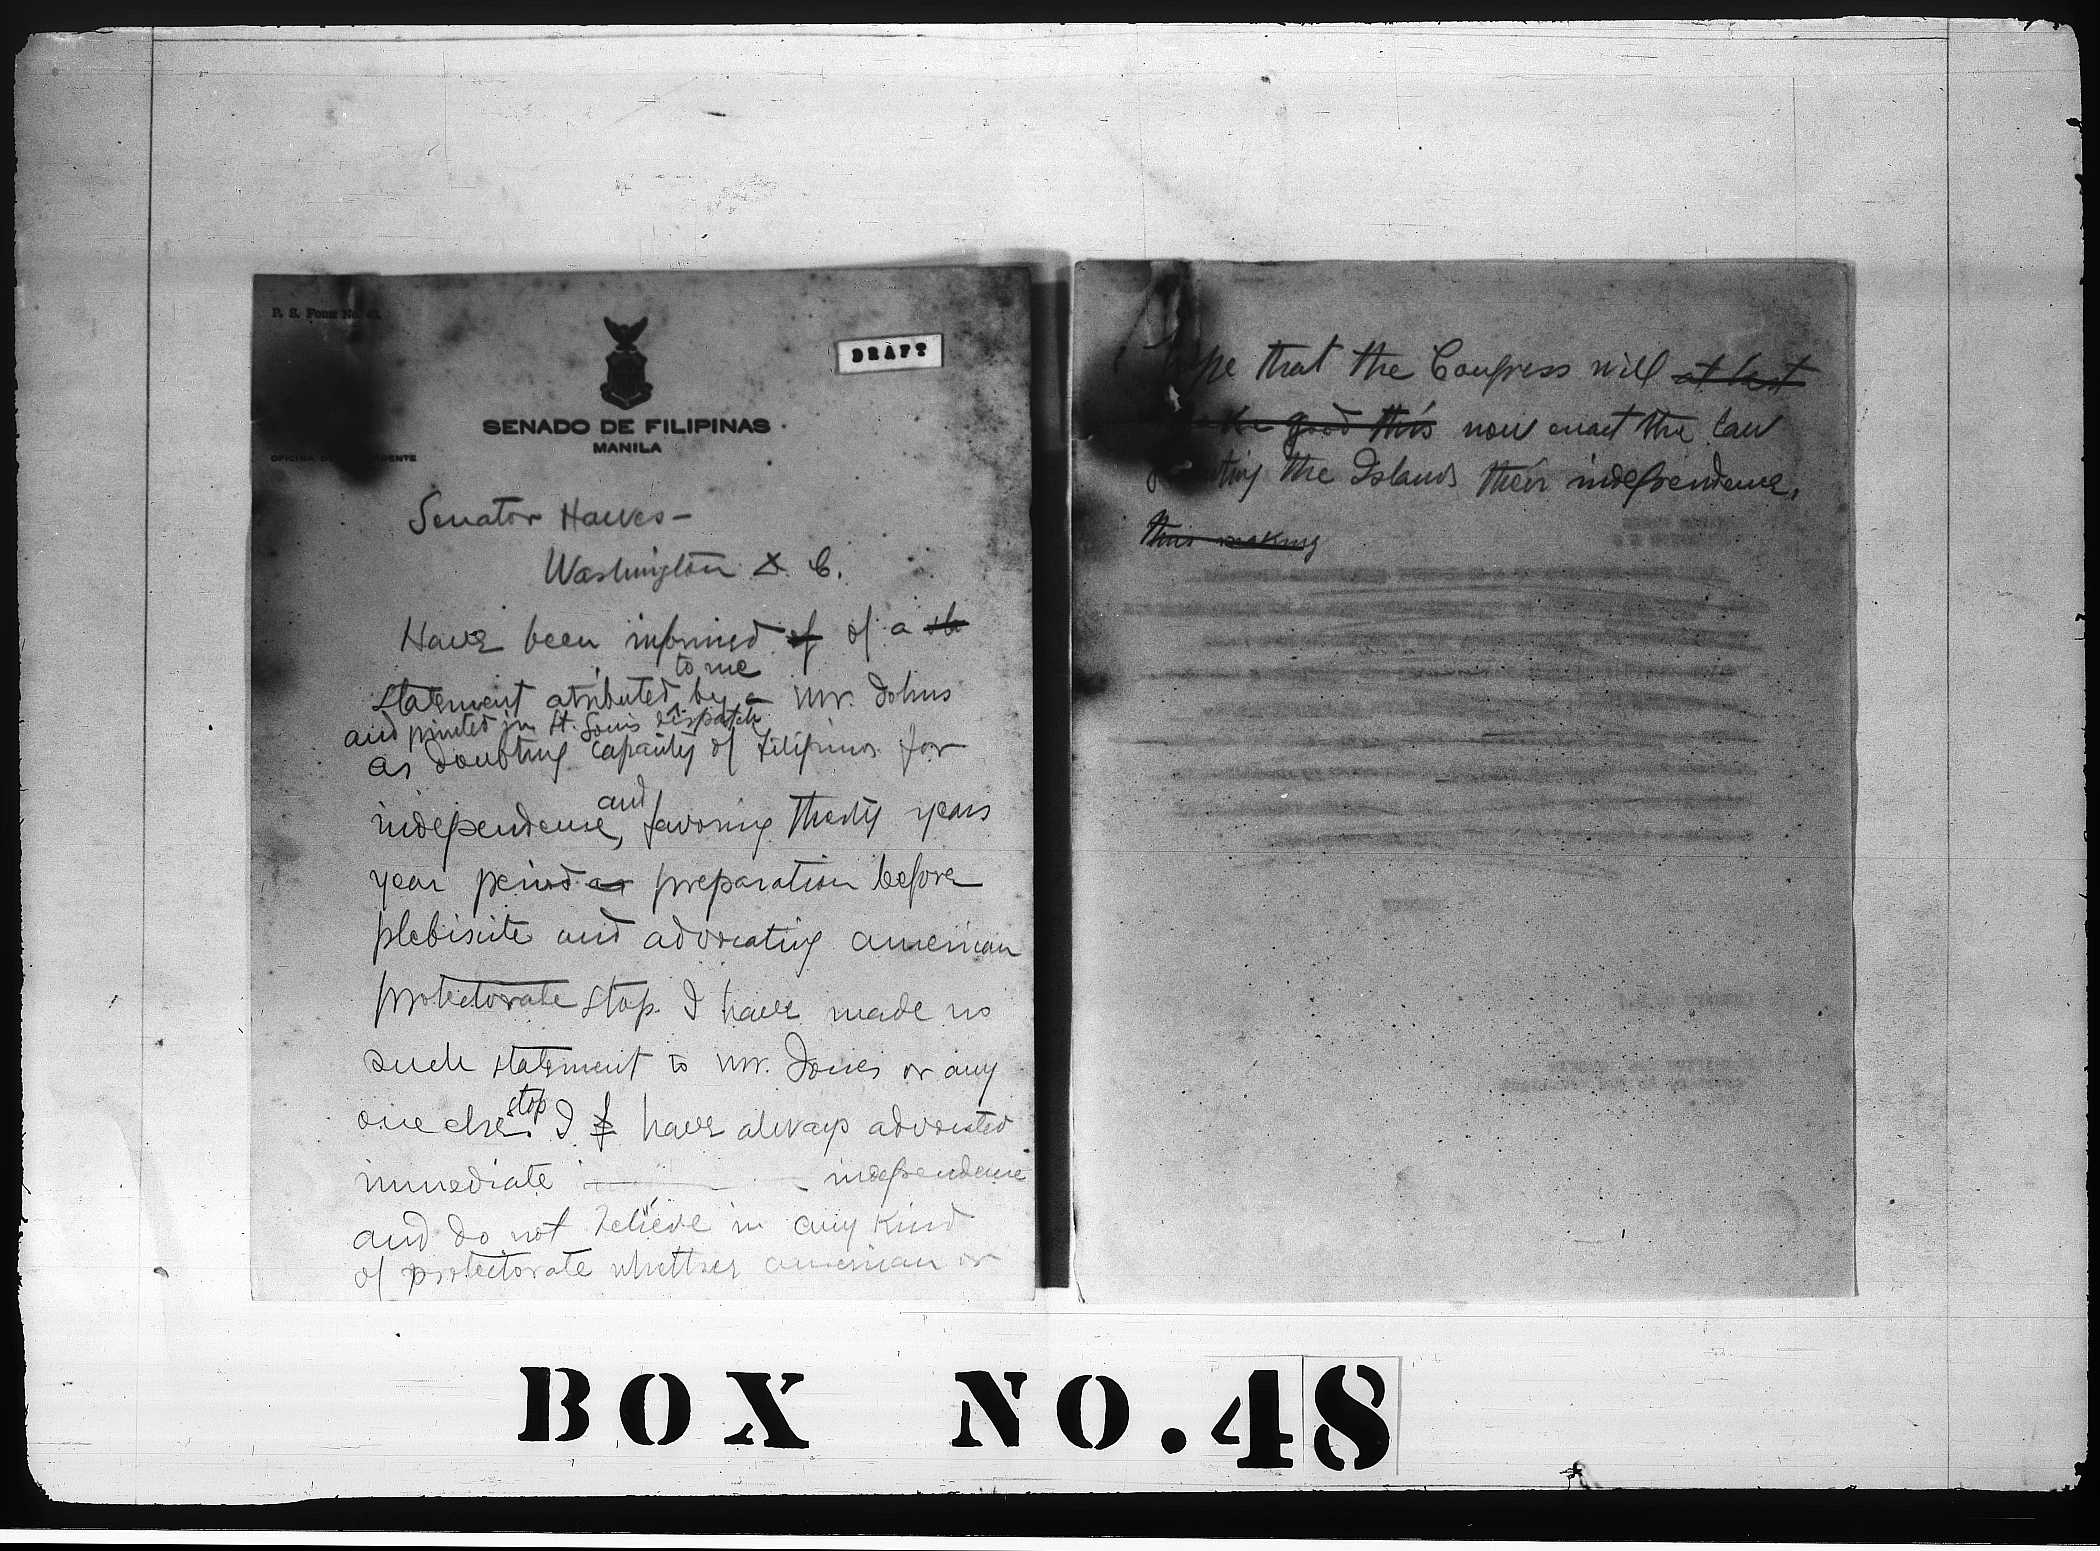 P. S. Form No.
DRAFT
SENADO DE FILIPINAS
MANILA
Senator Hawes -
Washington D. C.
Have been informed of of a sta
to me
statement atributed by a Mr. Johns
and printed in St. Louis Dispatch
as doubting capacity of Filipinos for
and
independence, favoring thirty years
year period as preparation before
plebiscite and advocating american
protectorate stop. I have made no
such statement to Mr. Jones or any
stop
one else. I f have always advocated
immediate independence
and do not believe in any kind
of protectorate whether american or
hope that the Congress will at last
make good this now enact the law
granting the Islands their independence,
thus making
BOX NO. 48